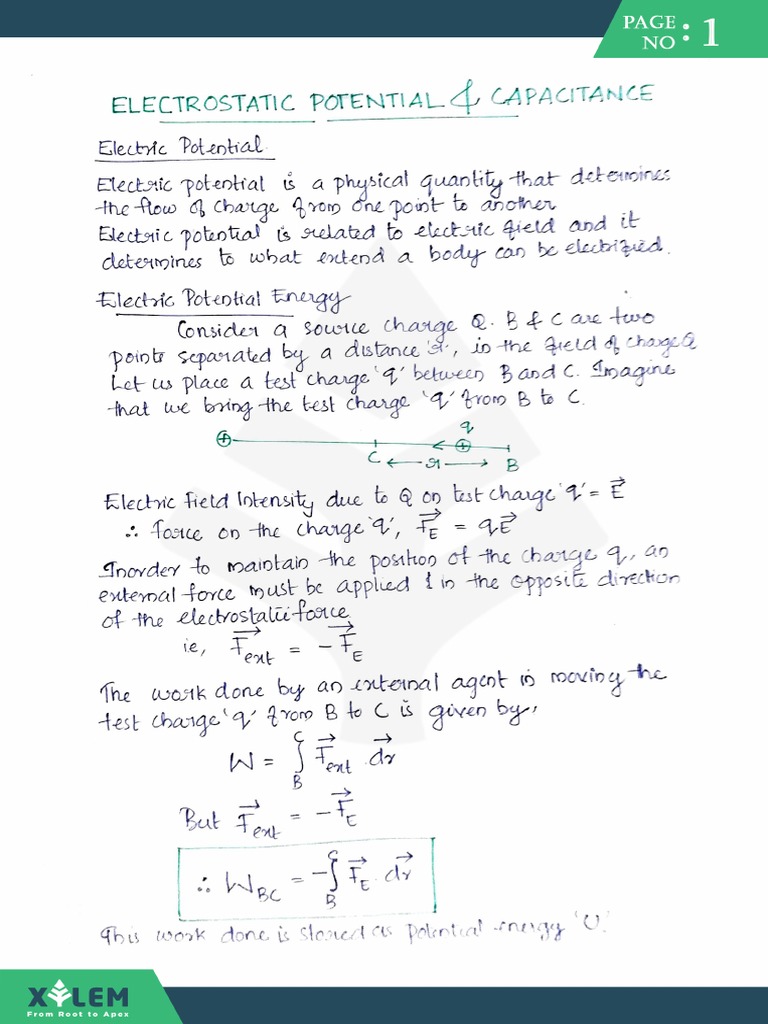 PAGE NO : 1
ELECTROSTATIC POTENTIAL & CAPACITANCE
Electric Potential
Electric potential is a physical quantity that determines
the flow of charge from one point to another
Electric potential is related to electric field and it
determines to what extend a body can be electrified.
Electric Potential Energy
Consider a source charge Q. B & C are two
points separated by a distance 'r', in the field of charge Q
Let us place a test charge 'q' between B and C. Imagine
that we bring the test charge 'q' from B to C.
q
+ C ← r → + B
Electric field Intensity due to Q on test charge 'q' = E⃗
∴ force on the charge 'q', F⃗_E = qE⃗
Inorder to maintain the position of the charge q, an
external force must be applied & in the opposite direction
of the electrostatic force
ie, F⃗_ext = -F⃗_E
The work done by an external agent in moving the
test charge 'q' from B to C is given by,
W = ∫_B^C F⃗_ext . dr⃗
But F⃗_ext = -F⃗_E
∴ W_BC = -∫_B^C F⃗_E . dr⃗
This work done is stored as potential energy 'U'.
XYLEM
From Root to Apex